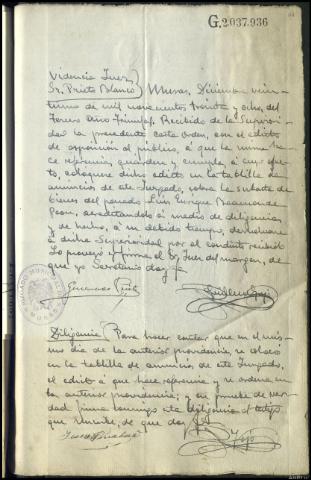 G.2037.936
Providencia Juez
Sr. Prieto Blanco
Muros, Diciembre vein-
tiuno de mil novecientos treinta y ocho, del
Tercer Año Triunfal. Recibido de la Superiori-
dad la precedente carta orden, con el edicto
de oposición al público, á que la misma ha-
ce referencia, guardese y cumpla, á cuyo efec-
to, coloquese dicho edicto en la tablilla de
anuncios de este Juzgado, sobre la subasta de
bienes del penado Luis Enrique Beaumonde
Pean, acreditandolo á medio de diligencia
y de hecho, á su debido tiempo, devolverá
á dicha Superioridad por el conducto recibido
Lo proveyó y firma el Sr. Juez del margen, de
que yo Secretario doy fe
Diligencia
Para hacer constar que en el mis-
mo día de la anterior providencia, se colocó
en la tablilla de anuncios de este Juzgado,
el edicto á que hace referencia y se ordena en
la anterior providencia; y en prueba de ver-
dad firma conmigo esta diligencia el testigo
que , de que doy fe